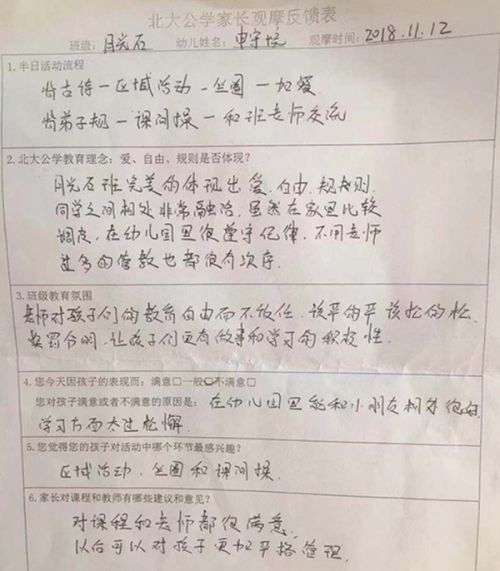 北大公学家长观摩反馈表
班级：月光石 幼儿姓名：申宇 观摩时间：2018.11.12
1.半日活动流程
古诗一区域活动一坐圈一加爱
弟子规一课间操一和班老师交流
2.北大公学教育理念：爱、自由、规则是否体现？
月光石班完美的体现出爱.自由.规则.
同学之间相处非常融洽,虽然在家里比较
调皮,在幼儿园里很遵守纪律,不用老师
过多的管教也都很有次序.
3.班级教育氛围
老师对孩子们的教育自由而不放任.该严的严该松的松.
奖罚分明,让孩子们更有做事和学习的积极性.
4.您今天因孩子的表现而：满意□一般□不满意□
您对孩子满意或者不满意的原因是：在幼儿园里能和小朋友相处很好
学习方面太过松懈.
5.您觉得您的孩子对活动中哪个环节最感兴趣？
区域活动.坐圈和课间操.
6.家长对课程和教师有哪些建议和意见？
对课程和老师都很满意.
以后可以对孩子更加严格管理.